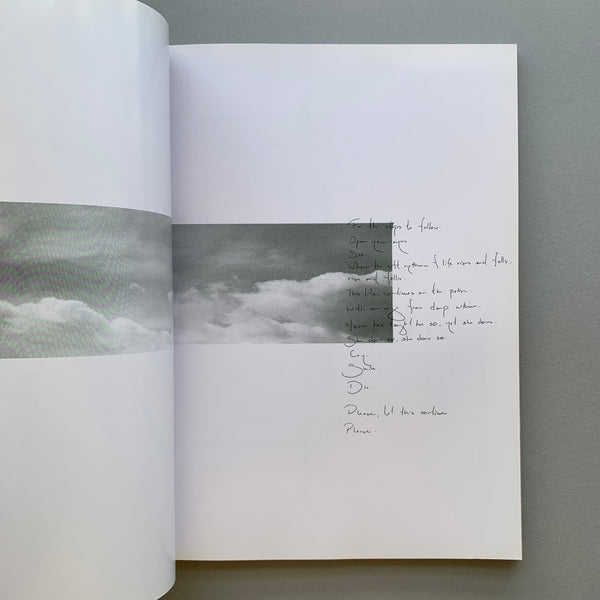 For the steps to follow.
Open your eyes.
See
where the soft rythmn of life rises and falls,
rises and falls.
This life, continues on the path
with energy from deep within.
has taught her so, yet she does.
She does so, she does so.
Cry.
Smile.
Die.
Please, let this continue.
Please.